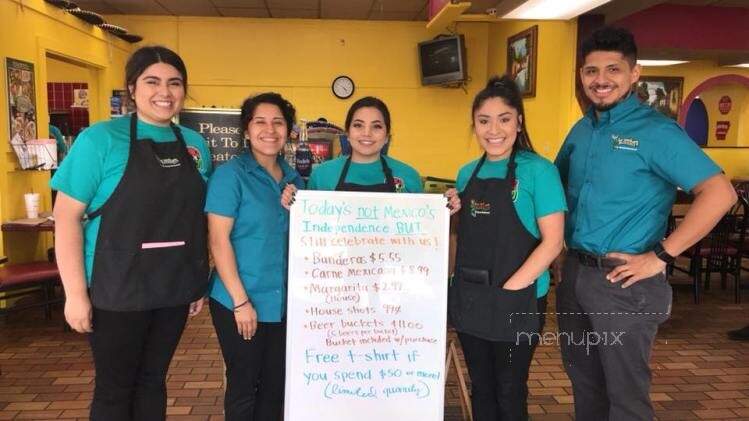 Please
it To
Today's not MEXICO's
Independence BUT
Still celebrate with us!
• Banderas $5.55
• Carne Mexicana $8.99
• Margarita $2.99
(House)
• House shots 99¢
• Beer buckets $11.00
(5 beers per bucket)
Bucket included w/purchase
Free t-shirt if
you spend $50 or more!
(limited quantity)
menupix